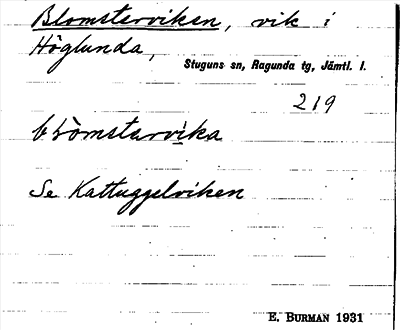 Blomsterviken, vik i
Höglunda,
Stuguns sn, Ragunda tg, Jämtl. l.
219
blòmstərvika
Se Kattuggelviken
E. BURMAN 1931